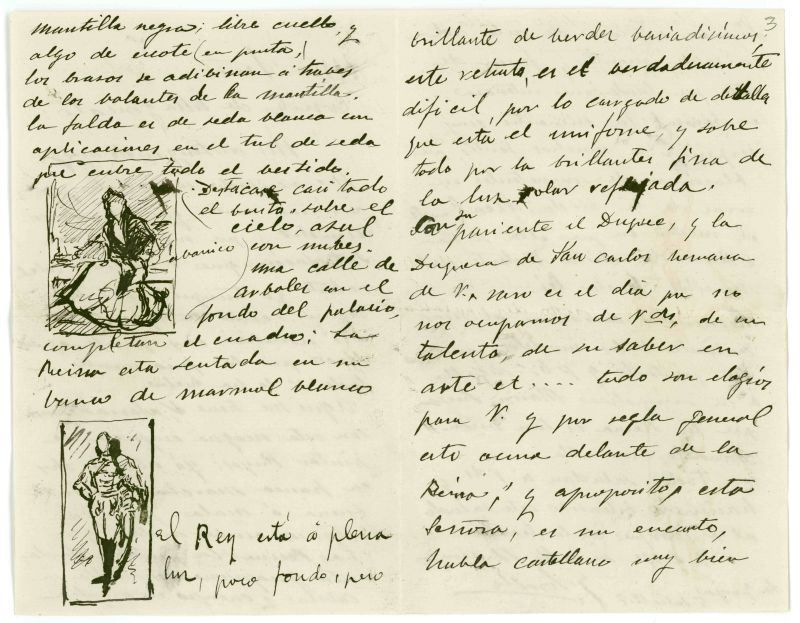 mantilla negra; libre cuello, y
algo de escote (en punta,)
los brasos se adibinan á trabes
de los volantes de la mantilla.
la falda es de seda blanca con
aplicaciones en el tul de seda
que cubre todo el vestido.
Destacase casi todo
el busto, sobre el
cielo, azul
abanico
con nubes.
una calle de
arboles con el
fondo del palacio,
completan el cuadro; La
Reina esta sentada en un
banco de marmol blanco
el Rey está á plena
luz, poco fondo, pero
3
brillante de verdes variadisimos;
este retrato, es el verdaderamente
dificil, por lo cargado de detalla
que esta el uniforme, y sobre
todo por la brillantes fisa de
la luz solar reflejada.
Con su pariente el Duque, y la
Duquesa de San Carlos hermana
de V. raro es el dia que no
nos ocupamos de Vds, de su
talento, de su saber en
arte et.... todo son elogios
para V. y por regla general
esto ocurre delante de la
Reina, y apropósito, esta
Señora, es un encanto,
habla castellano muy bien